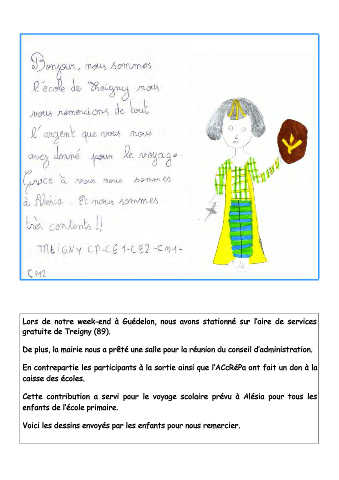 Bonjour, nous sommes
l'école de Treigny nous
vous remercions de tout
l'argent que vous nous
avez donné pour le voyage
Grace à vous nous sommes
à Alésia. Et nous sommes
très contents !!
TREIGNY CP-CE1-CE2-CM1-
CM2
Lors de notre week-end à Guédelon, nous avons stationné sur l'aire de services
gratuite de Treigny (89).
De plus, la mairie nous a prêté une salle pour la réunion du conseil d'administration.
En contrepartie les participants à la sortie ainsi que l'ACcRéPa ont fait un don à la
caisse des écoles.
Cette contribution a servi pour le voyage scolaire prévu à Alésia pour tous les
enfants de l'école primaire.
Voici les dessins envoyés par les enfants pour nous remercier.